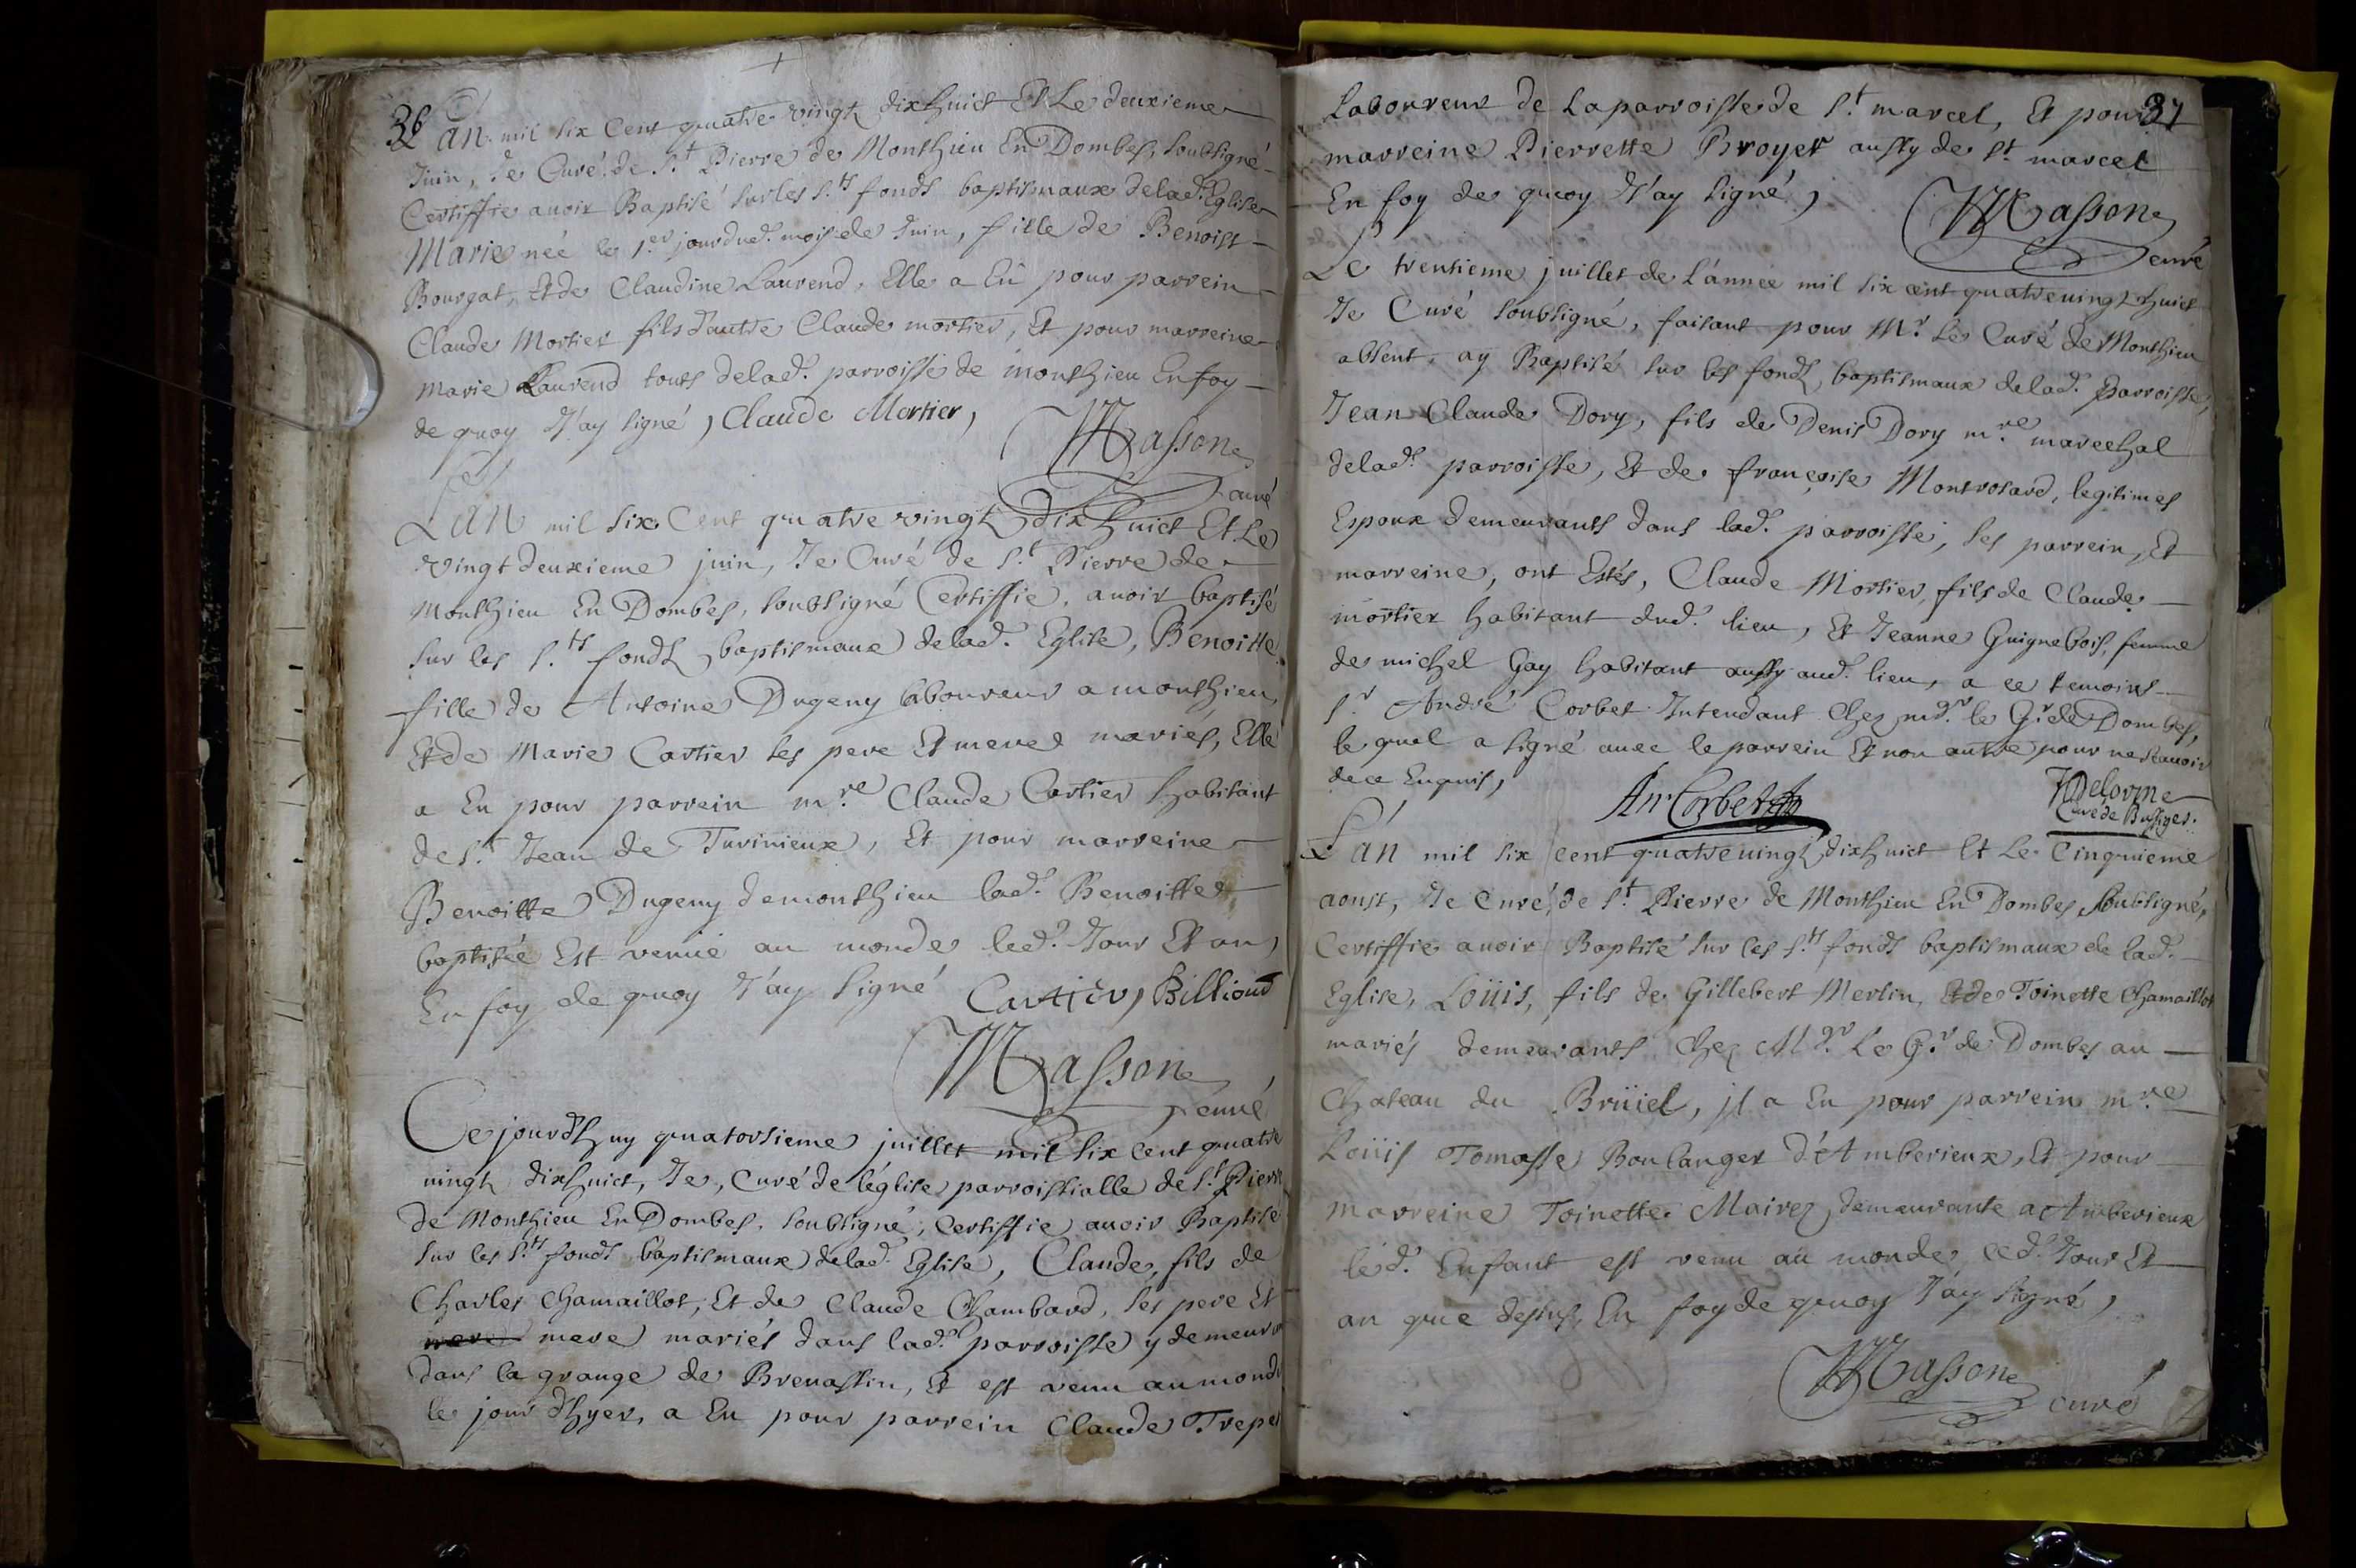 36
L'an mil six Cent quatre vingt dixhuict Et Le deuxieme
Juin, Je Curé de S.t Pierre de Monthieu En Dombes, soubsigné
Certiffie auoir Baptisé sur les S.ts fonds baptismaux delad. Eglise
Marie née le 1.er jour dud. mois de Juin, fille de Benoist
Bourgat, Et de Claudine Laurend, Elle a Eû pour parrein
Claude Mortier fils d'autre Claude mortier, Et pour marreine
Marie Laurend touts delad. parroisse de monthieu En foy
de quoy J'ay signé, Claude Mortier,
Masson
curé
L'an mil six Cent quatre vingt dix huict Et Le
vingt deuxieme juin, Je Curé de S.t Pierre de
Monthieu En Dombes, soubsigné Certiffie, auoir baptisé
sur les S.ts fonds baptismaux delad. Eglise, Benoitte
fille de Antoine Dugeny laboureur a monthieu,
Et de Marie Cartier ses pere Et mere mariés, Elle
a Eu pour parrein m.re Claude Cartier habitant
de S.t Jean de Turinieux, Et pour marreine
Benoitte Dugeny de monthieu lad. Benoitte
baptisée Est venüe au monde led. Jour Et an,
En foy de quoy J'ay signé Cartier, Billioud
Masson
curé
Ce jourdhuy quatorsieme juillet mil six cent quatre
uingt dixhuict, Je, Curé de léglise parroissialle de S.t Pierre
de Monthieu En Dombes, soubsigné, Certiffie auoir Baptisé
sur les S.ts fonds baptismaux delad. Eglise, Claude, fils de
Charles Chamaillot, Et de Claude Chambard, ses pere Et
mere mere mariés dans lad. parroisse y demeur
dans la grange de Breuassin, Et est venu au monde
le jour dhyer, a Eu pour parrein Claude Trepe
37
Laboureur de La parroisse de S.t marcel, Et pour
marreine Pierrette Broyer aussy de St marcel
En foy de quoy J'ay signé,
Masson
curé
Le trentieme juillet de L'année mil six cent quatreuingt huict
Je Curé soubsigné, faisant pour M.r Le Curé de Monthieu
absent, ay Baptisé sur les fonds baptismaux delad. Parroisse,
Jean Claude Dory, fils de Denis Dory m.re marechal
delad. parroisse, Et de françoise Montrosard, legitimes
Espoux demeurants dans lad. parroisse, ses parrein, Et
marreine, ont Estés, Claude Mortier, fils de Claude
mortier habitant dud. lieu, Et Jeanne Guignebois, femme
de michel Gay habitant aussy aud. lieu, a ce temoins
S.r André Corbet Intendant chez md.r le G.r de Dombes,
le quel a signé auec le parrein Et non autre pour ne scauoir
de ce Enquis,
An Corbet
Delorme
Curé de Bussiges.
L'an mil six cent quatreuingt dixhuict Et Le Cinquieme
aoust, Je Curé, de S.t Pierre de Monthieu En Dombes soubsigné,
Certiffie auoir Baptisé sur les S.ts fonds baptismaux de lad.
Eglise, Loüis, fils de Gillebert Merlin, Et de Toinette Chamaillot
mariés demeurants chez Md.r Le G.r de Dombes au
Chateau du Brüiel, jl a Eu pour parrein m.re
Loüis Tomasse Boulanger d'Amberieux, Et pour
marreine Toinette Mairez demeurante a Amberieux
led. Enfant est venu au monde ced. Jour Et
an que dessus, En foy de quoy J'ay signé,
Masson
curé